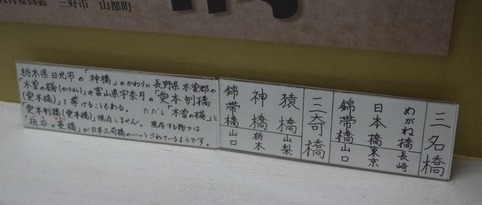 三好市 山都町
栃木県日光市の「神橋」のかわりに長野県木曽郡の
「木曽の橋(かけはし)」や富山県宇奈月の「愛本刎橋
(愛本橋)」を挙げることもある。ただし「木曽の橋」と
「愛本刎橋(愛本橋)」は現存しません。現存する物では
が日本三奇橋の一つとされているようです。
三名橋
めがね橋 長崎
日本橋 東京
錦帯橋 山口
三奇橋
猿橋 山梨
神橋 栃木
錦帯橋 山口